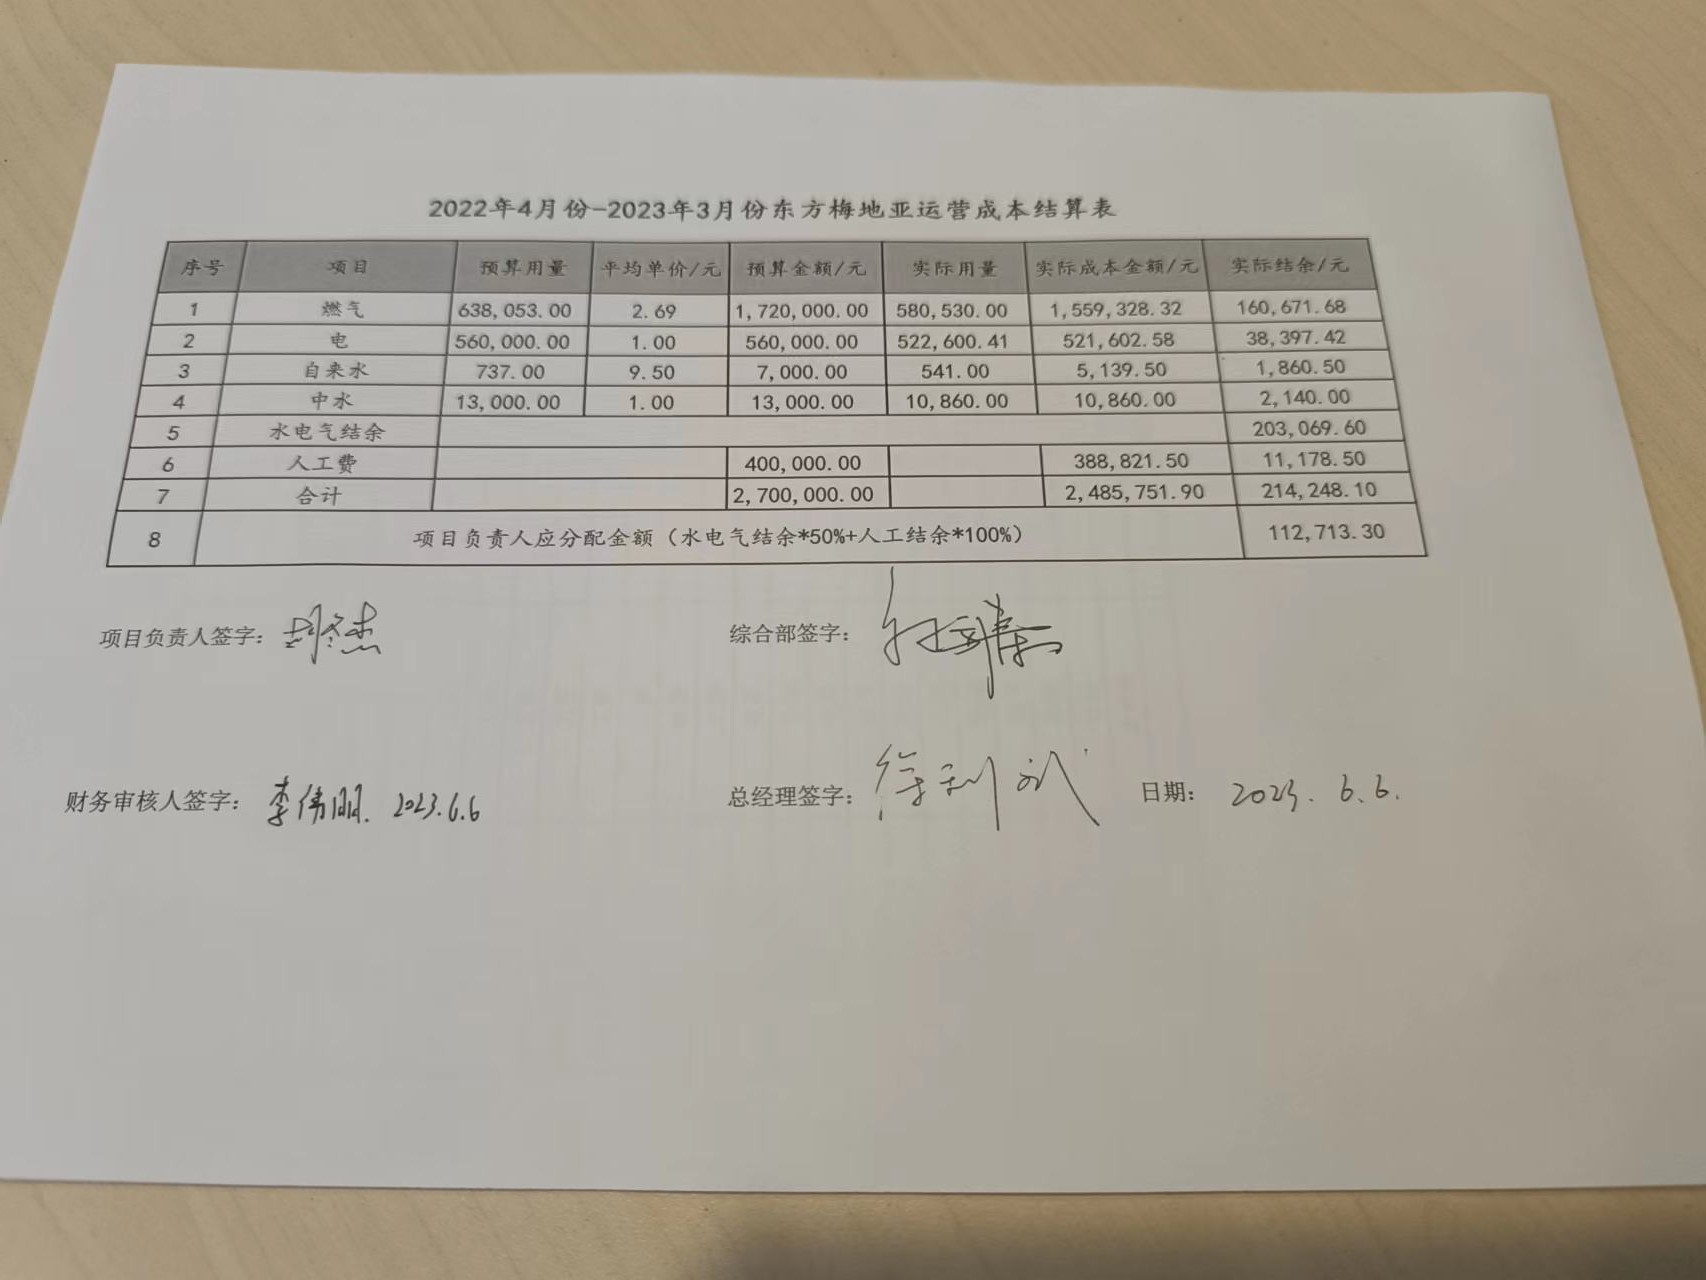 2022年4月份-2023年3月份东方梅地亚运营成本结算表
序号 项目 预算用量 平均单价/元 预算金额/元 实际用量 实际成本金额/元 实际结余/元
1 燃气 638,053.00 2.69 1,720,000.00 580,530.00 1,559,328.32 160,671.68
2 电 560,000.00 1.00 560,000.00 522,600.41 521,602.58 38,397.42
3 自来水 737.00 9.50 7,000.00 541.00 5,139.50 1,860.50
4 中水 13,000.00 1.00 13,000.00 10,860.00 10,860.00 2,140.00
5 水电气结余 203,069.60
6 人工费 400,000.00 388,821.50 11,178.50
7 合计 2,700,000.00 2,485,751.90 214,248.10
8 项目负责人应分配金额（水电气结余*50%+人工结余*100%） 112,713.30
项目负责人签字： 综合部签字：
财务审核人签字： 李伟明. 2023.6.6 总经理签字： 徐利斌 日期： 2023. 6.6.